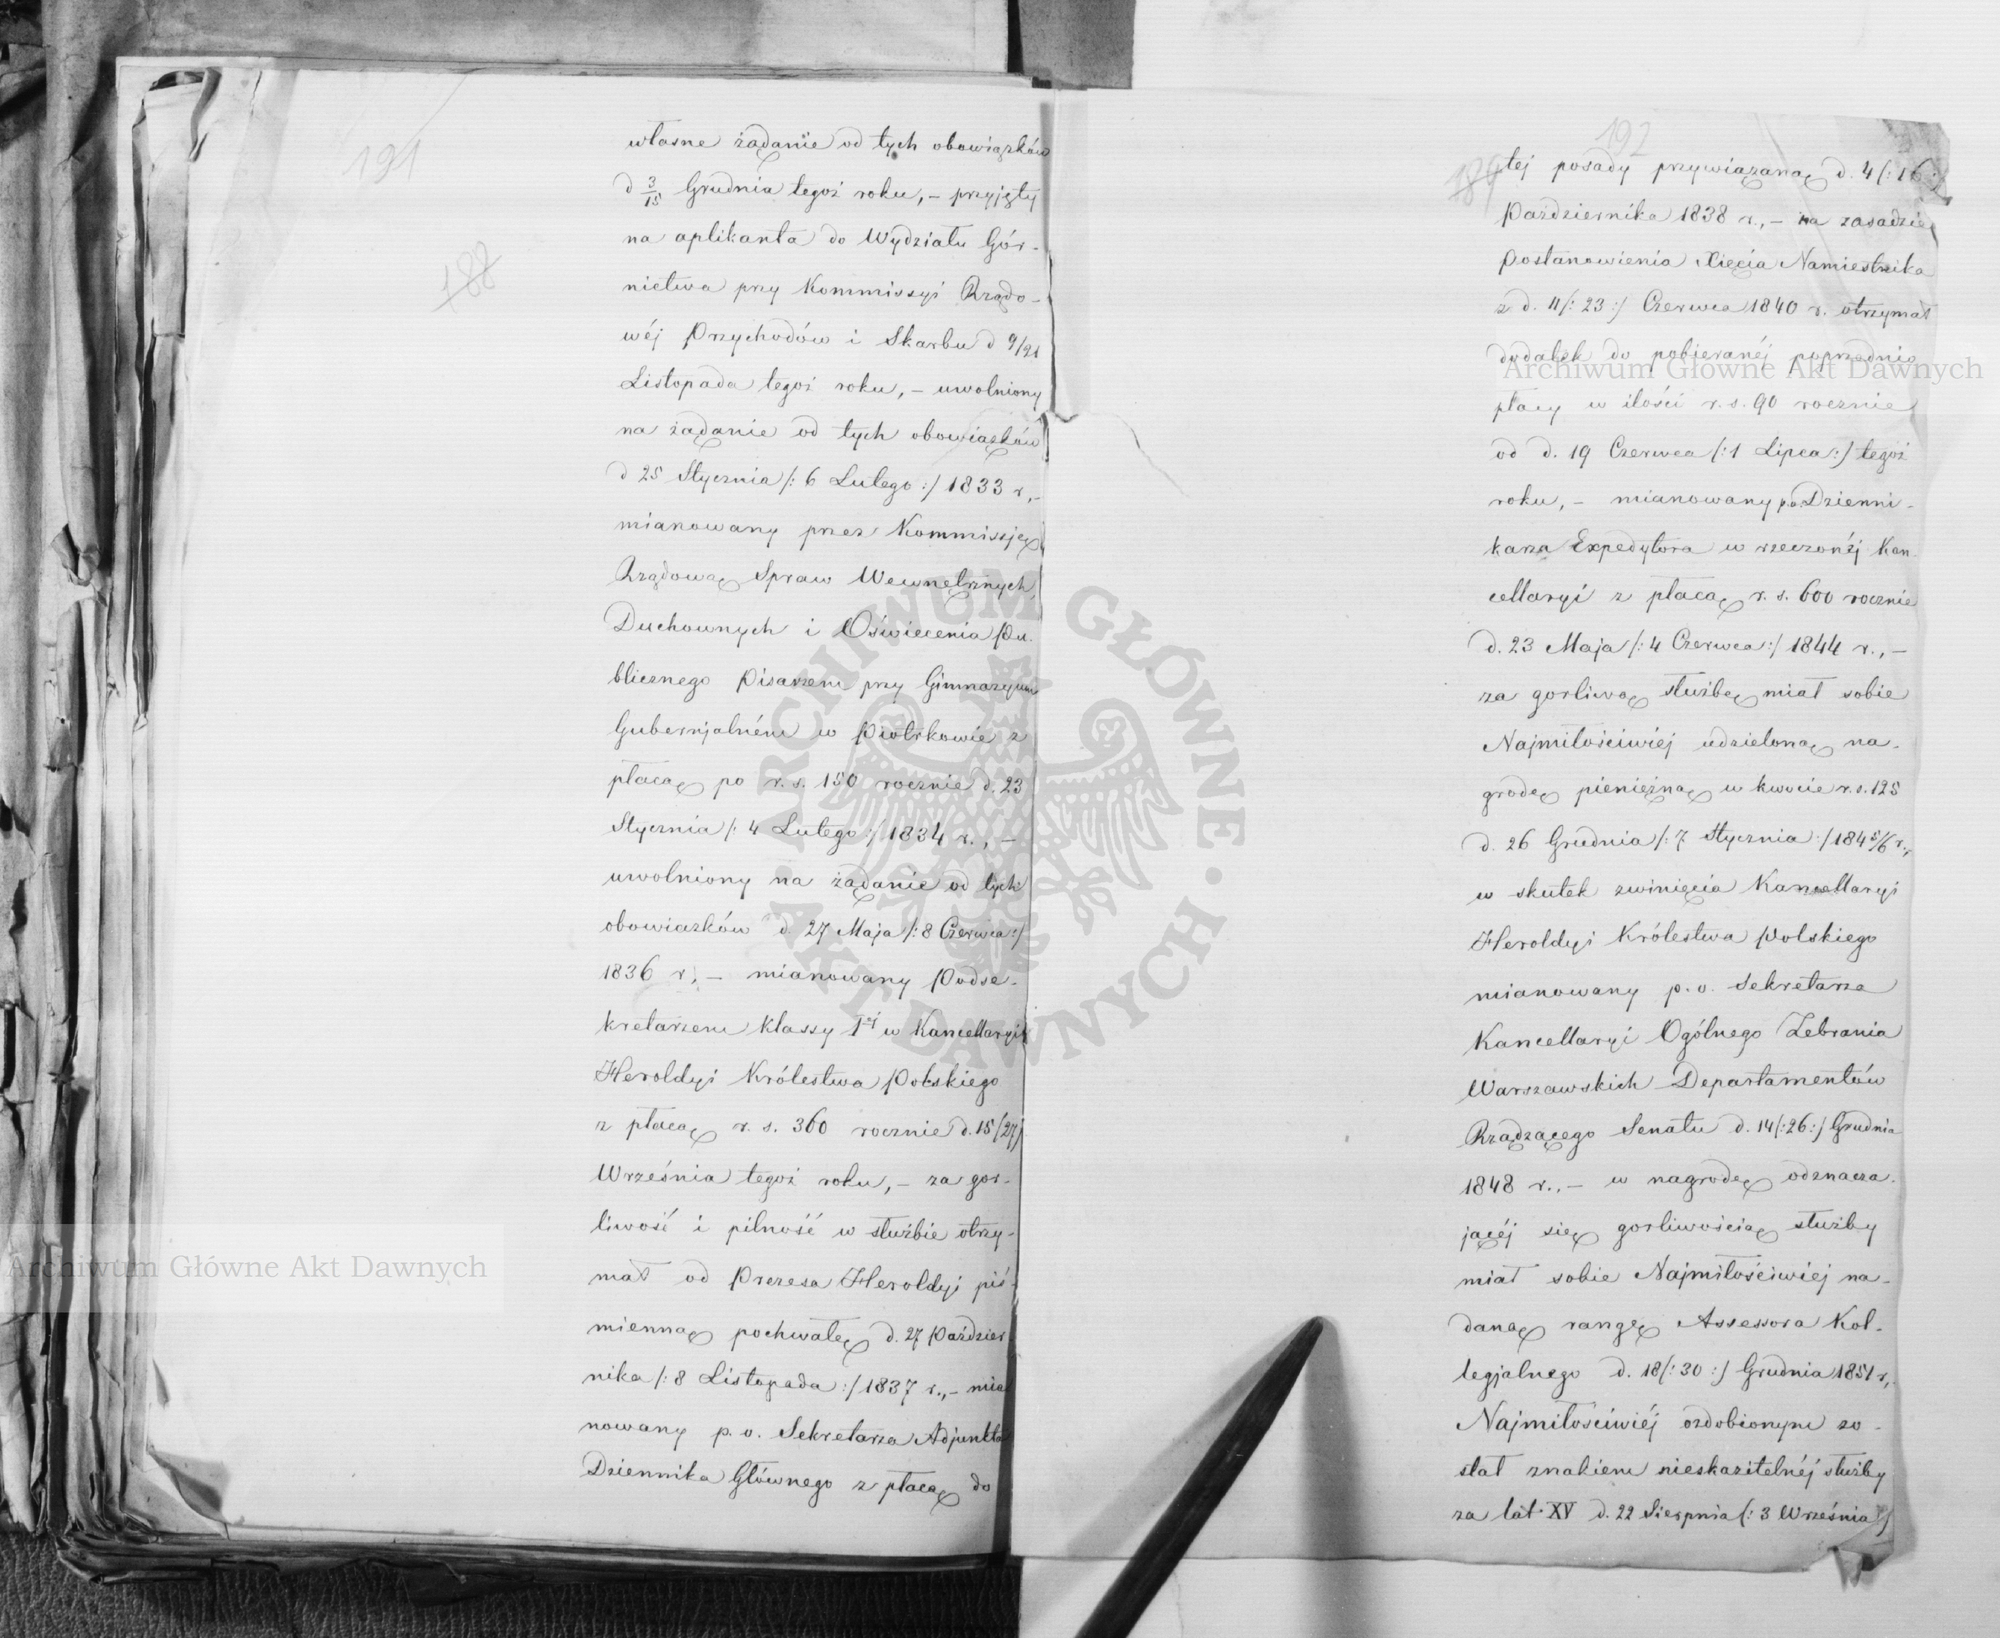 191
188
własne żądanie od tych obowiązków
d 3/15 Grudnia tegoż roku, – przyjęty
na aplikanta do Wydziału Gór-
nictwa przy Kommissyi Rządo-
wéj Przychodów i Skarbu d 9/21
Listopada tegoż roku, – uwolniony
na żądanie od tych obowiązków
d 25 Stycznia /: 6 Lutego :/ 1833 r, –
mianowany przez Kommissję
Rządową Spraw Wewnętrznych,
Duchownych i Oświecenia Pu-
blicznego Pisarzem przy Gimnazyum
Gubernjalném w Piotrkowie z
płacą po r. s. 150 rocznie d. 23
Stycznia /: 4 Lutego :/ 1834 r., –
uwolniony na żądanie od tych
obowiązków d. 27 Maja /: 8 Czerwca :/
1836 r, – mianowany Podse-
kretarzem klassy Iej w Kancellaryi
Heroldyi Królestwa Polskiego
z płacą r. s. 360 rocznie d. 15/27/
Września tegoż roku, – za gor-
liwość i pilność w służbie otrzy-
mał od Prezesa Heroldyi piś-
mienną pochwałę d. 27 Paździer-
nika /: 8 Listopada :/ 1837 r., – mia-
nowany p. o. Sekretarza Adjunkta
Dziennika Głównego z płacą do
192
189
tej posady przywiązaną d. 4 /: 16 :/
Października 1838 r., – na zasadzie
Postanowienia Xięcia Namiestnika
z d. 11 /: 23 :/ Czerwca 1840 r. otrzymał
dodatek do pobieranéj poprzednio
płacy w ilości r. s. 90 rocznie
od d. 19 Czerwca /: 1 Lipca :/ tegoż
roku, – mianowany p.o. Dzienni-
karza Expedytora w rzeczonéj Kan-
cellaryi z płacą r. s. 600 rocznie
d. 23 Maja /: 4 Czerwca :/ 1844 r., –
za gorliwą służbę miał sobie
Najmiłościwiéj udzieloną na-
grodę pieniężną w kwocie r. s. 125
d. 26 Grudnia /: 7 Stycznia :/ 1845/6 r.,
w skutek zwinięcia Kancellaryi
Heroldyi Królestwa Polskiego
mianowany p. o. Sekretarza
Kancellaryi Ogólnego Zebrania
Warszawskich Departamentów
Rządzącego Senatu d. 14 /: 26 :/ Grudnia
1848 r., – w nagrodę odznacza-
jącéj się gorliwością służby
miał sobie Najmiłościwiej na-
daną rangę Assessora Kol-
legjalnego d. 18 /: 30 :/ Grudnia 1851 r,
Najmiłościwiéj ozdobionym zo-
stał znakiem nieskazitelnéj służby
za lat XV d. 22 Sierpnia /: 3 Września :/
Archiwum Główne Akt Dawnych
Archiwum Główne Akt Dawnych
ARCHIWUM GŁÓWNE · AKT DAWNYCH ·